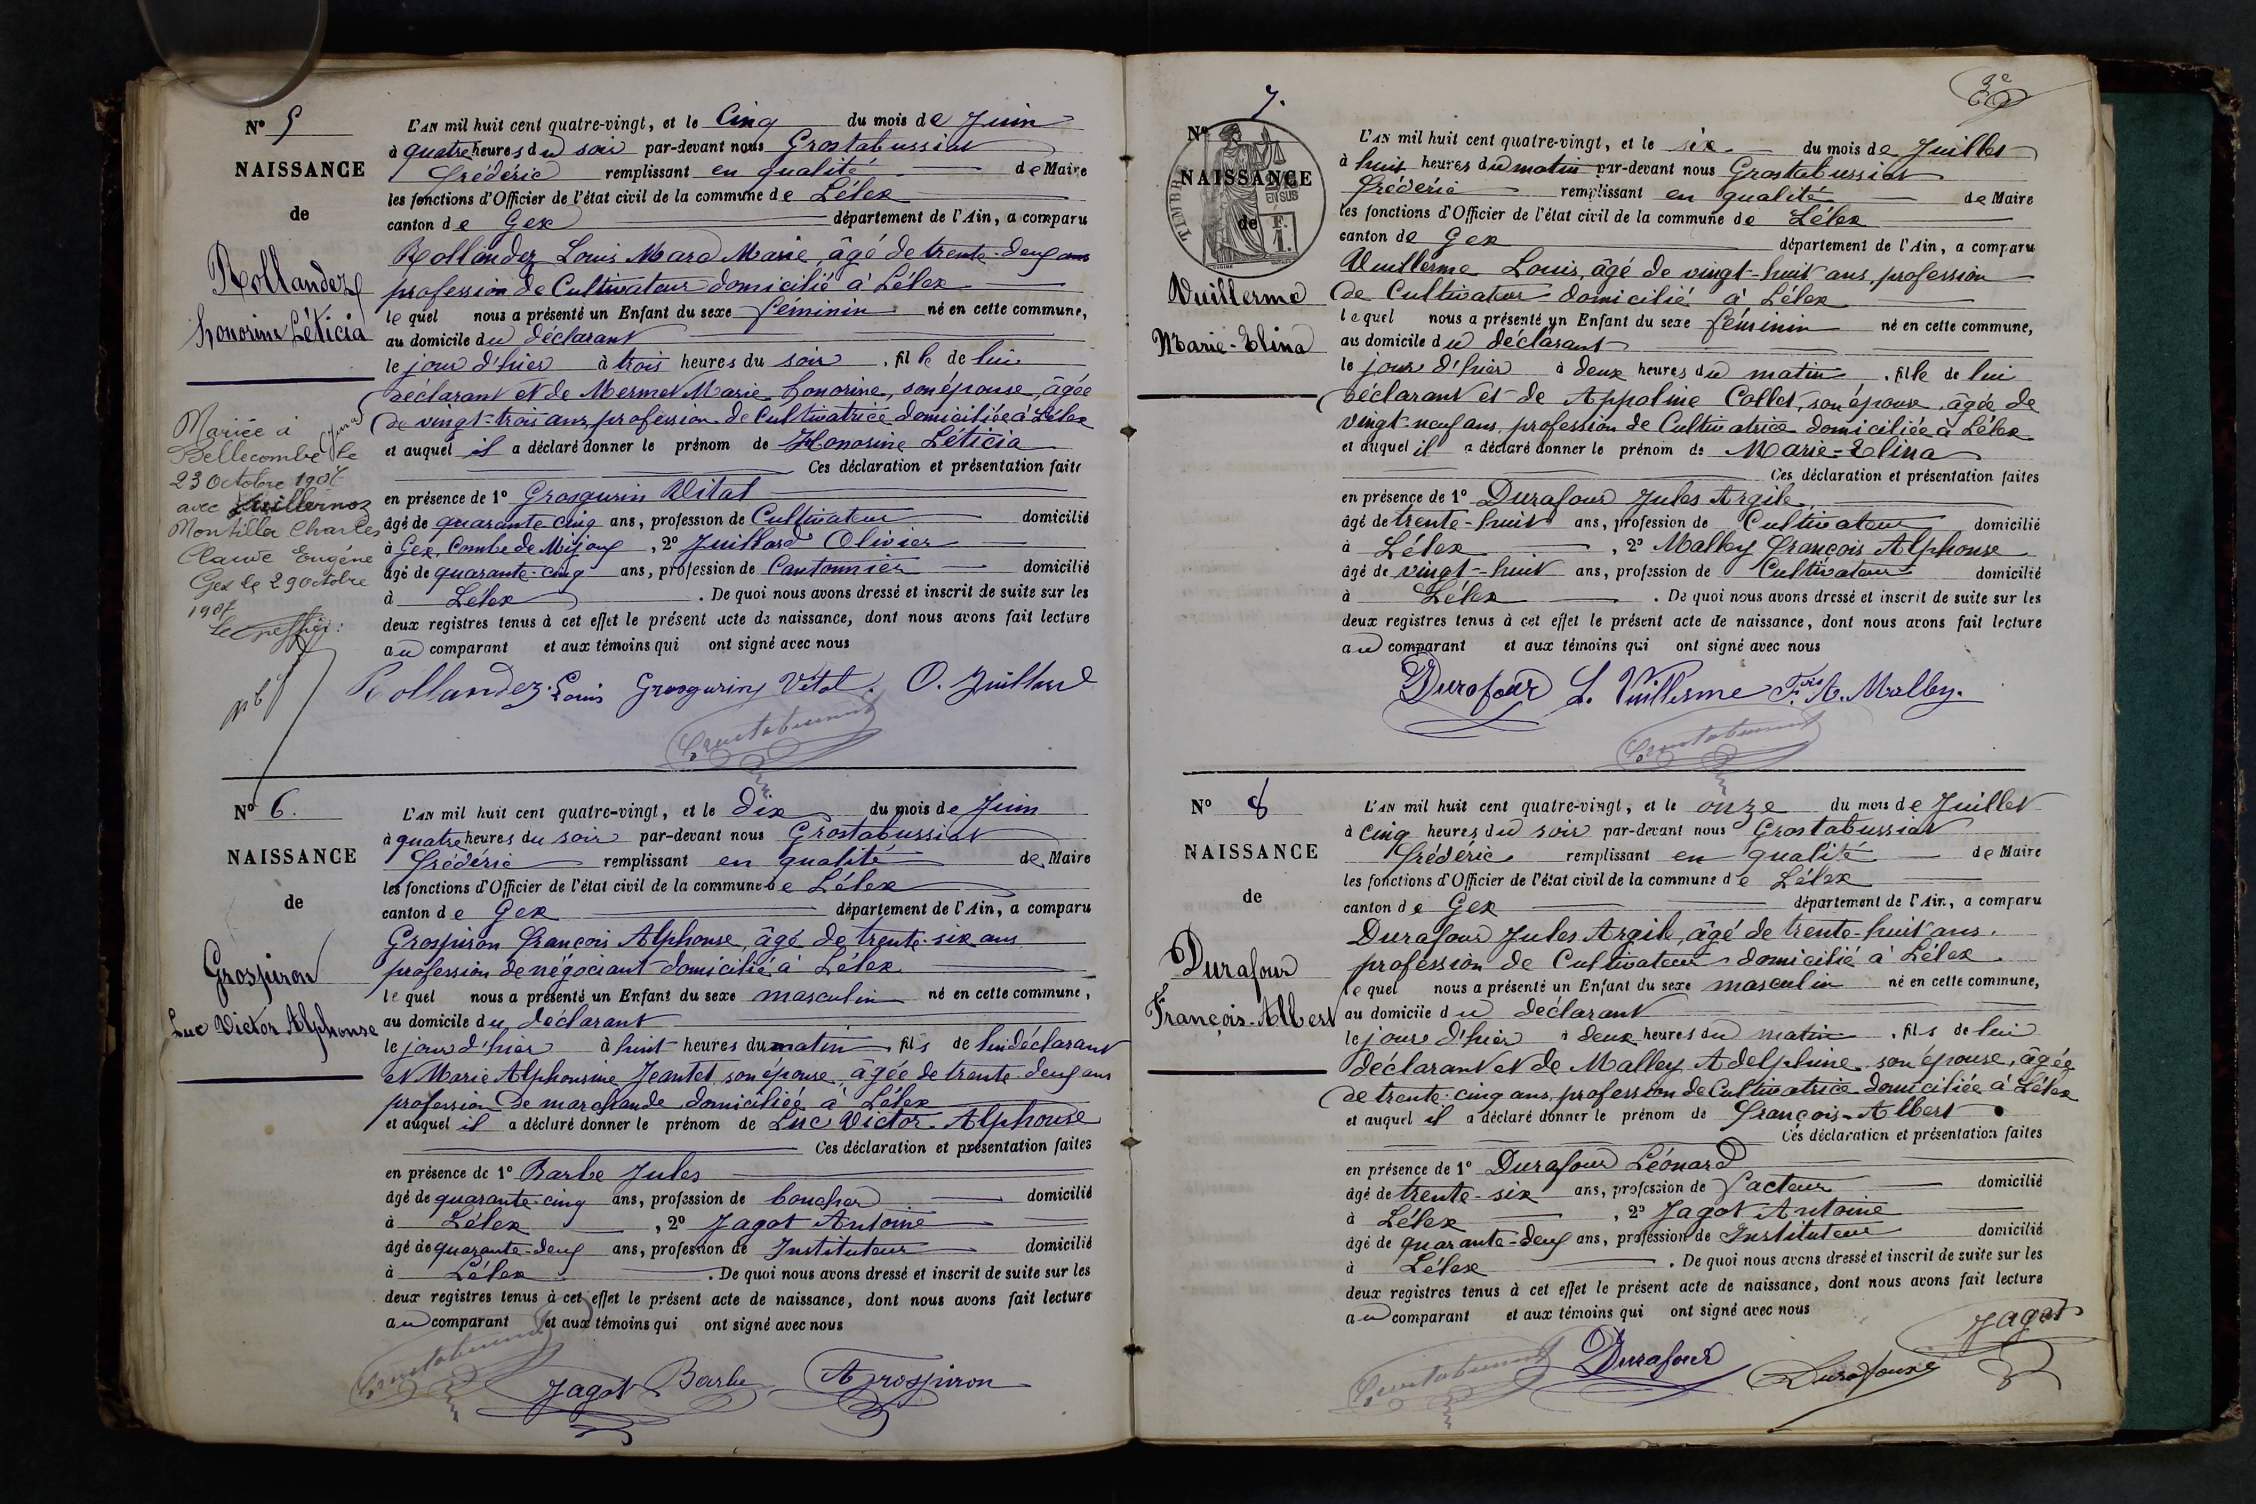 N° 5
NAISSANCE
de
Rollandez
Honorine Léticia
Mariée à
Bellecombe (Jura) le
23 Octobre 1907
avec Vuillermoz
Montillet Charles
Claude Eugène
Gex le 29 octobre
1907
Le Greffier:
L'AN mil huit cent quatre-vingt, et le Cinq du mois de Juin
à quatre heures du soir par-devant nous Grostabussiat
Frédéric remplissant en qualité de Maire
les fonctions d'Officier de l'état civil de la commune de Lélex
canton de Gex département de l'Ain, a comparu
Rollandez Louis Marc Marie, âgé de trente-deux ans
profession de Cultivateur domicilié à Lélex
lequel nous a présenté un Enfant du sexe féminin né en cette commune,
au domicile du déclarant
le jour d'hier à trois heures du soir, fille de lui
déclarant et de Mermet Marie Honorine, son épouse, âgée
de vingt-trois ans, profession de Cultivatrice domiciliée à Lélex
et auquel il a déclaré donner le prénom de Honorine Léticia
Ces déclaration et présentation faites
en présence de 1° Grosgurin Vital
âgé de quarante cinq ans, profession de Cultivateur domicilié
à Gex, Combe de Mijoux, 2° Juillard Olivier
âgé de quarante-cinq ans, profession de Cantonnier domicilié
à Lélex. De quoi nous avons dressé et inscrit de suite sur les
deux registres tenus à cet effet le présent acte de naissance, dont nous avons fait lecture
au comparant et aux témoins qui ont signé avec nous
Rollandez Louis Grosgurin Vital. O. Juillard
Grostabussiat
N° 6.
NAISSANCE
de
Grospiron
Luc Victor Alphonse
L'AN mil huit cent quatre-vingt, et le dix du mois de Juin
à quatre heures du soir par-devant nous Grostabussiat
Frédéric remplissant en qualité de Maire
les fonctions d'Officier de l'état civil de la commune de Lélex
canton de Gex département de l'Ain, a comparu
Grospiron François Alphonse, âgé de trente-six ans
profession de négociant domicilié à Lélex
lequel nous a présenté un Enfant du sexe masculin né en cette commune,
au domicile du déclarant
le jour d'hier à huit heures du matin, fils de lui déclarant
et Marie Alphonsine Jeantet, son épouse, âgée de trente-deux ans
profession de marchande domiciliée à Lélex
et auquel il a déclaré donner le prénom de Luc Victor Alphonse
Ces déclaration et présentation faites
en présence de 1° Barbe Jules
âgé de quarante-cinq ans, profession de boucher domicilié
à Lélex, 2° Jagot Antoine
âgé de quarante-deux ans, profession de Instituteur domicilié
à Lélex. De quoi nous avons dressé et inscrit de suite sur les
deux registres tenus à cet effet le présent acte de naissance, dont nous avons fait lecture
au comparant et aux témoins qui ont signé avec nous
Grostabussiat
Jagot Barbe A Grospiron
7.
N°
NAISSANCE
de
Vuillerme
Marie-Elina
L'AN mil huit cent quatre-vingt, et le six du mois de Juillet
à huit heures du matin par-devant nous Grostabussiat
Frédéric remplissant en qualité de Maire
les fonctions d'Officier de l'état civil de la commune de Lélex
canton de Gex département de l'Ain, a comparu
Vuillerme Louis, âgé de vingt-huit ans, profession
de Cultivateur domicilié à Lélex
lequel nous a présenté un Enfant du sexe féminin né en cette commune,
au domicile du déclarant
le jour d'hier à deux heures du matin, fille de lui
déclarant et de Appoline Collet, son épouse, âgée de
vingt-neuf ans, profession de Cultivatrice domiciliée à Lélex
et auquel il a déclaré donner le prénom de Marie-Elina
Ces déclaration et présentation faites
en présence de 1° Durafour Jules Argile
âgé de trente-huit ans, profession de Cultivateur domicilié
à Lélex, 2° Malley François Alphonse
âgé de vingt-huit ans, profession de Cultivateur domicilié
à Lélex. De quoi nous avons dressé et inscrit de suite sur les
deux registres tenus à cet effet le présent acte de naissance, dont nous avons fait lecture
au comparant et aux témoins qui ont signé avec nous
Durafour L. Vuillerme Fçois A. Malley.
Grostabussiat
N° 8
NAISSANCE
de
Durafour
François-Albert
L'AN mil huit cent quatre-vingt, et le onze du mois de Juillet
à cinq heures du soir par-devant nous Grostabussiat
Frédéric remplissant en qualité de Maire
les fonctions d'Officier de l'état civil de la commune de Lélex
canton de Gex département de l'Ain, a comparu
Durafour Jules Argile, âgé de trente-huit ans.
profession de Cultivateur domicilié à Lélex.
lequel nous a présenté un Enfant du sexe masculin né en cette commune,
au domicile du déclarant
le jour d'hier à deux heures du matin, fils de lui
déclarant et de Malley Adelphine son épouse, âgée
de trente-cinq ans, profession de Cultivatrice domiciliée à Lélex
et auquel il a déclaré donner le prénom de François-Albert
Ces déclaration et présentation faites
en présence de 1° Durafour Léonard
âgé de trente-six ans, profession de facteur domicilié
à Lélex, 2° Jagot Antoine
âgé de quarante-deux ans, profession de Instituteur domicilié
à Lélex. De quoi nous avons dressé et inscrit de suite sur les
deux registres tenus à cet effet le présent acte de naissance, dont nous avons fait lecture
au comparant et aux témoins qui ont signé avec nous
Jagot
Grostabussiat Durafour Durafour